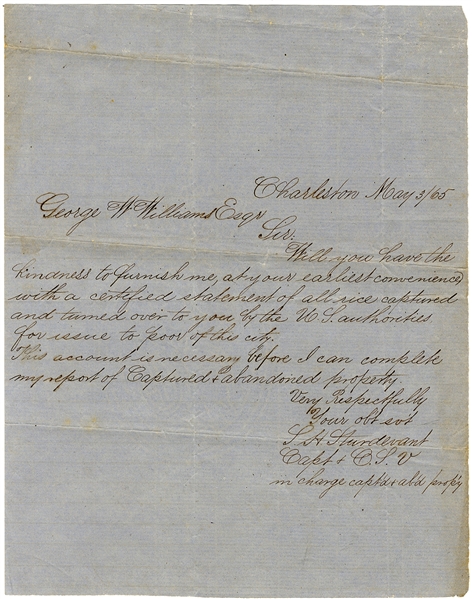 Charleston May 3/65
George W Williams Esqr
Sir.
Will you have the
kindness to furnish me, at your earliest convenience,
with a certified statement of all rice captured
and turned over to you by the U.S. authorities
for issue to poor of this city.
This account is necessary before I can complete
my report of Captured & abandoned property.
Very Respectfully
Your obt svt
S H Sturdevant
Capt & C.S.V
in charge captd & abd propy